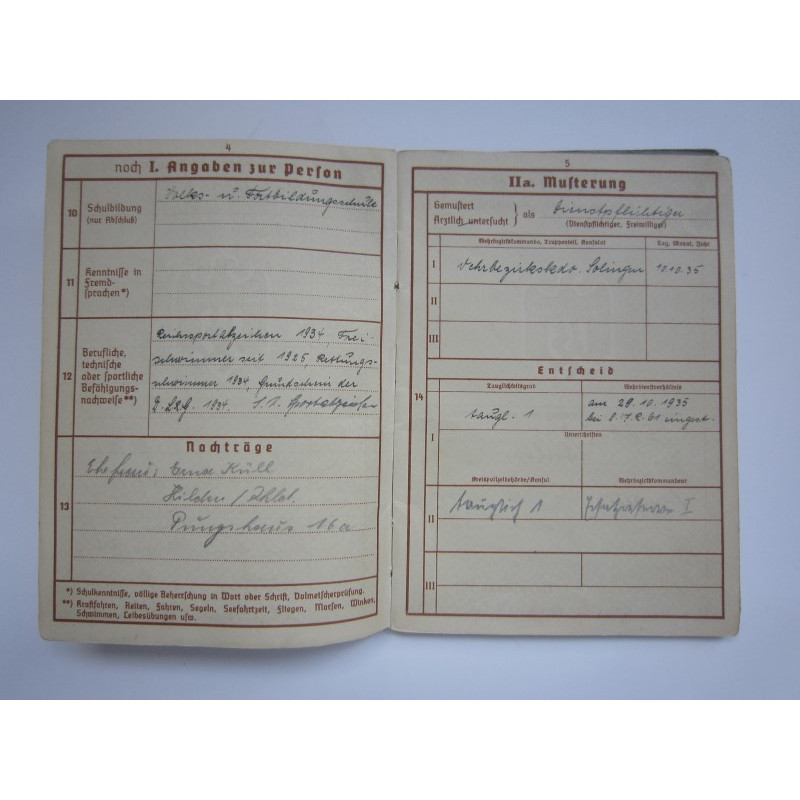 4
noch I. Angaben zur Person
10
Schulbildung
(nur Abschluß)
Volks- u. Fortbildungsschule
11
Kenntnisse in
Fremd-
sprachen*)
12
Berufliche,
technische
oder sportliche
Befähigungs-
nachweise**)
Reichssportabzeichen 1934, Frei-
schwimmer seit 1925, Rettungs-
schwimmer 1934, Grundschein der
D.L.R.G. 1934. S.A. Sportabzeichen
Nachträge
13
Ehefrau: Erna Küll
Hilden /
Pungshaus 16a
*) Schulkenntnisse, völlige Beherrschung in Wort oder Schrift, Dolmetscherprüfung.
**) Kraftfahren, Reiten, Fahren, Segeln, Seefahrtzeit, Fliegen, Morsen, Winken,
Schwimmen, Leibesübungen usw.
5
IIa. Musterung
Gemustert
Ärztlich untersucht } als Dienstpflichtiger
(Dienstpflichtiger, Freiwilliger)
Wehrbezirkskommando, Truppenteil, Konsulat
Tag, Monat, Jahr
I
Wehrbezirkskdo. Solingen
10.10.35
II
III
Entscheid
14
Tauglichkeitsgrad
Wehrdienstverhältnis
I
taugl. 1
am 29.10.1935
bei
Unterschriften
Kreispolizeibehörde/Konsul
Wehrbezirkskommandeur
II
tauglich 1
Ersatzreserve I
III